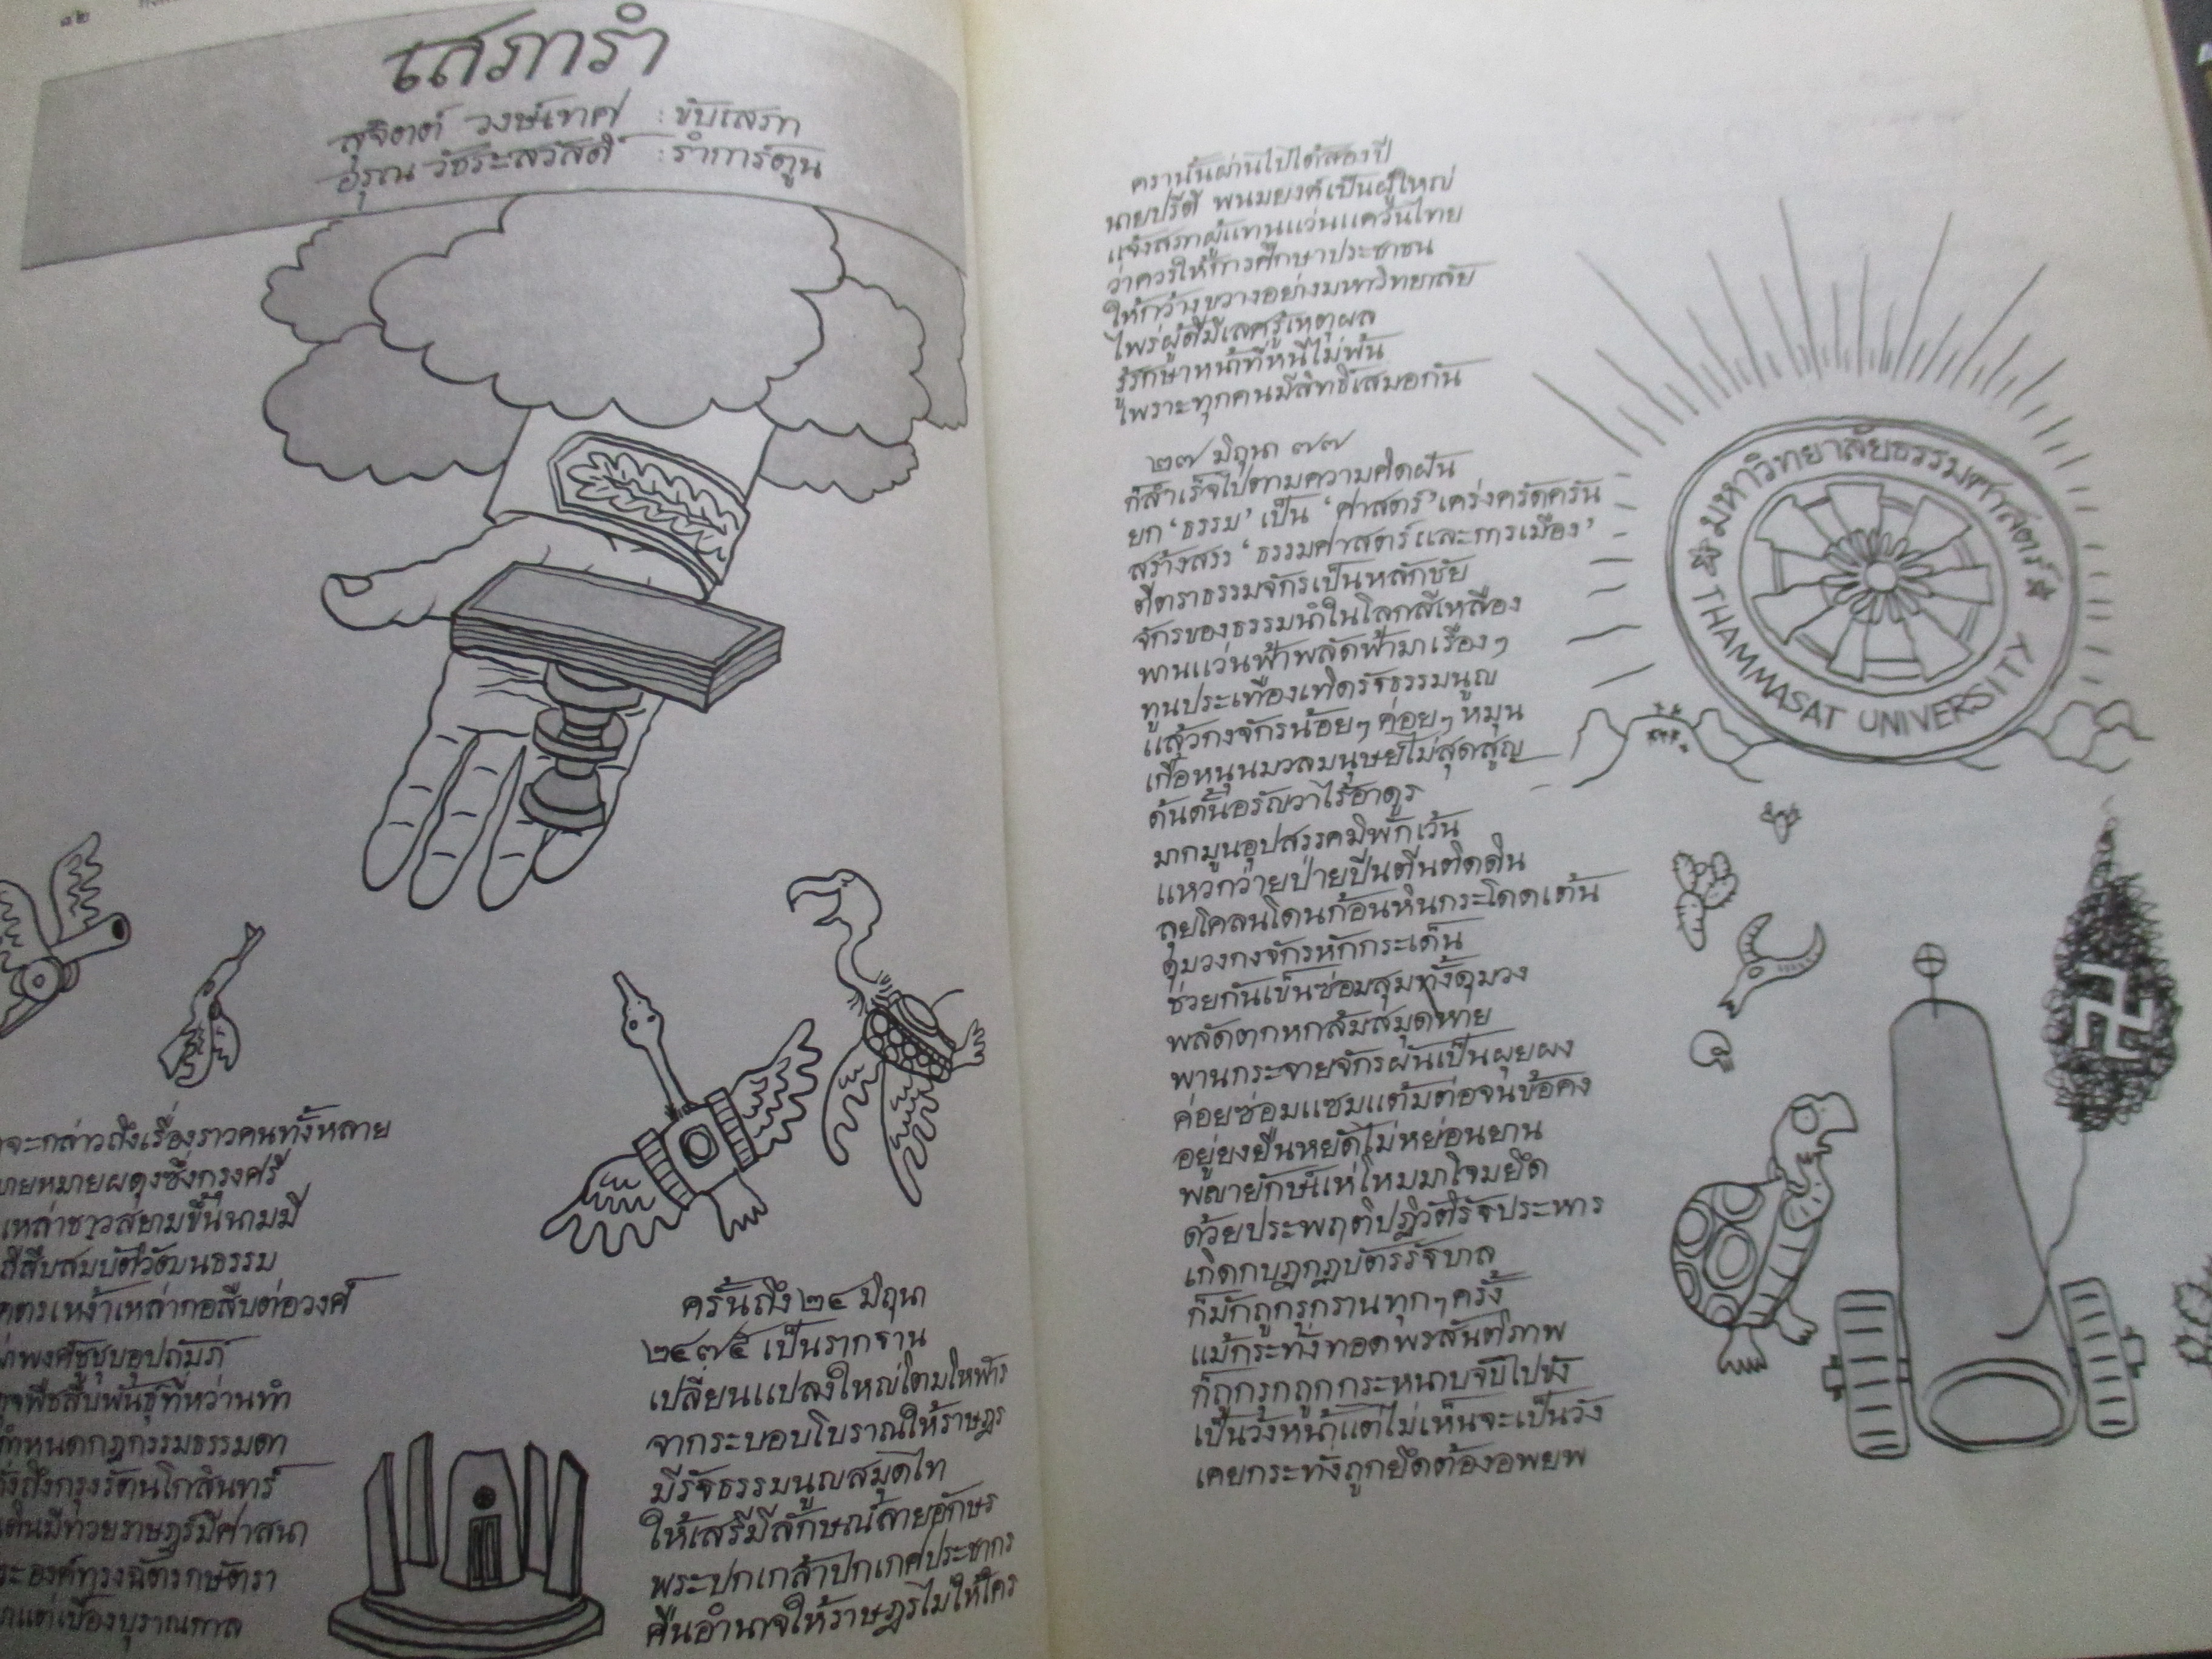 ๑๒
เสภารำ
สุจิตต์ วงษ์เทศ : ขับเสภา
อรุณ วัชระสวัสดิ์ : รำการ์ตูน
จะกล่าวถึงเรื่องราวคนทั้งหลาย
หมายผดุงซึ่งกรุงศรี
เหล่าชาวสยามขึ้นนามมี
สืบสมบัติวัฒนธรรม
เหง้าเหล่ากอสืบต่อวงศ์
พงศ์ชูชุบอุปถัมภ์
พืชสืบพันธุ์ที่หว่านทำ
กำหนดกฎกรรมธรรมดา
ถึงกรุงรัตนโกสินทร์
มีทวยราษฎร์มีศาสนา
องค์ทรงฉัตรกษัตรา
แต่เบื้องบุราณกาล
ครั้นถึง ๒๔ มิถุนา
๒๔๗๕ เป็นรากฐาน
เปลี่ยนแปลงใหญ่โตมโหฬาร
จากระบอบโบราณให้ราษฎร
มีรัฐธรรมนูญสมุดไท
ให้เสรีมีลักษณ์ลายอักษร
พระปกเกล้าปกเกศประชากร
คืนอำนาจให้ราษฎรไม่ให้ใคร
ครานั้นผ่านไปได้สองปี
นายปรีดี พนมยงค์เป็นผู้ใหญ่
แจ้งสภาผู้แทนแว่นแคว้นไทย
ว่าควรให้การศึกษาประชาชน
ให้กว้างขวางอย่างมหาวิทยาลัย
ไพร่ผู้ดีมีเลศรู้เหตุผล
รู้รักษาหน้าที่หนีไม่พ้น
เพราะทุกคนมีสิทธิ์เสมอกัน
๒๗ มิถุนา ๗๗
ก็สำเร็จไปตามความคิดฝัน
ยก ‘ธรรม’ เป็น ‘ศาสตร์’ เคร่งครัดครัน
สร้างสรร ‘ธรรมศาสตร์และการเมือง’
ตีตราธรรมจักรเป็นหลักชัย
จักรของธรรมนำในโลกสีเหลือง
พานแว่นฟ้าพลัดฟ้ามาเรืองๆ
ทูนประเทืองเทิดรัฐธรรมนูญ
แล้วกงจักรน้อยๆ ค่อยๆ หมุน
เกื้อหนุนมวลมนุษย์ไม่สุดสูญ
ดั้นด้นอรัญวาไร้อาดูร
มากมูนอุปสรรคมิพักเว้น
แหวกว่ายป่ายปีนตีนติดดิน
ลุยโคลนโดนก้อนหินกระโดดเต้น
ดุมวงกงจักรหักกระเด็น
ช่วยกันเข็นซ่อมสุมทั้งดุมวง
พลัดตกหกล้มสมุดพ่าย
พานกระจายจักรผันเป็นผุยผง
ค่อยซ่อมแซมแต้มต่อจนข้อคง
อยู่ยงยืนหยัดไม่หย่อนยาน
พญายักษ์แห่โหมมาโจมยึด
ด้วยประพฤติปฏิวัติรัฐประหาร
เกิดกบฏกฎบัตรรัฐบาล
ก็มักถูกรุกรานทุกๆ ครั้ง
แม้กระทั่งทอดพรสันติภาพ
ก็ถูกรุกถูกกระหนาบจับไปขัง
เป็นวังหน้าแต่ไม่เห็นจะเป็นวัง
เคยกระทั่งถูกยึดต้องอพยพ
มหาวิทยาลัยธรรมศาสตร์
THAMMASAT UNIVERSITY